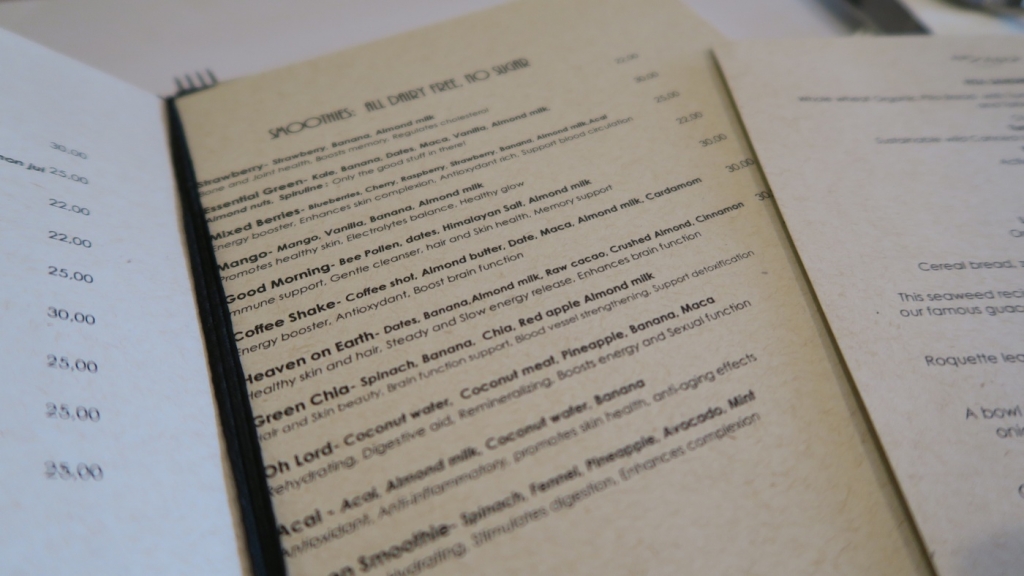 30.00
25.00
22.00
22.00
25.00
30,00
25,00
25,00
25,00
SMOOTHIES: ALL DAIRY FREE, NO SUGAR
Strawberry- Strawberry, Banana, Almond milk 22.00
and Joint health, Boosts memory, Regulates cholesterol
Essential Green- Kale, Banana, Dates, Maca, Vanilla, Almond milk 30.00
Almond nuts, Spirulina: Only the good stuff in there!
Mixed Berries- Blueberries, Cherry, Raspberry, Strawberry, Banana, Almond milk Acai 25.00
Energy booster, Enhances skin complexion, Antioxydant rich, Support blood circulation
Mango- Mango, Vanilla, Banana, Almond milk 22.00
Promotes healthy skin, Electrolytes balance, Healthy glow
Good Morning- Bee Pollen, dates, Himalayan Salt, Almond milk 30.00
Immune support, Gentle cleanser, hair and Skin health, Memory support
Coffee Shake- Coffee shot, Almond butter, Date, Maca, Almond milk, Cardamom 30.00
Energy booster, Antioxydant, Boost brain function
Heaven on Earth- Dates, Banana,Almond milk, Raw cacao, Crushed Almond, Cinnamon 30
Healthy skin and hair, Steady and Slow energy release, Enhances brain function
Green Chia- Spinach, Banana, Chia, Red apple Almond milk
Hair and Skin beauty, Brain function support, Blood vessel strengthening, Support detoxification
Oh Lord- Coconut water, Coconut meat, Pineapple, Banana, Maca
Rehydrating, Digestive aid, Remineralizing, Boosts energy and Sexual function
Acai - Acai, Almond milk, Coconut water, Banana
Antioxidant, Anti-inflammatory, promotes skin health, anti-aging effects
Smoothie- Spinach, Fennel, Pineapple, Avocado, Mint
Hydrating, Stimulates digestion, Enhances complexion
Cereal bread,
This seaweed
our famous
Roquette
A bowl